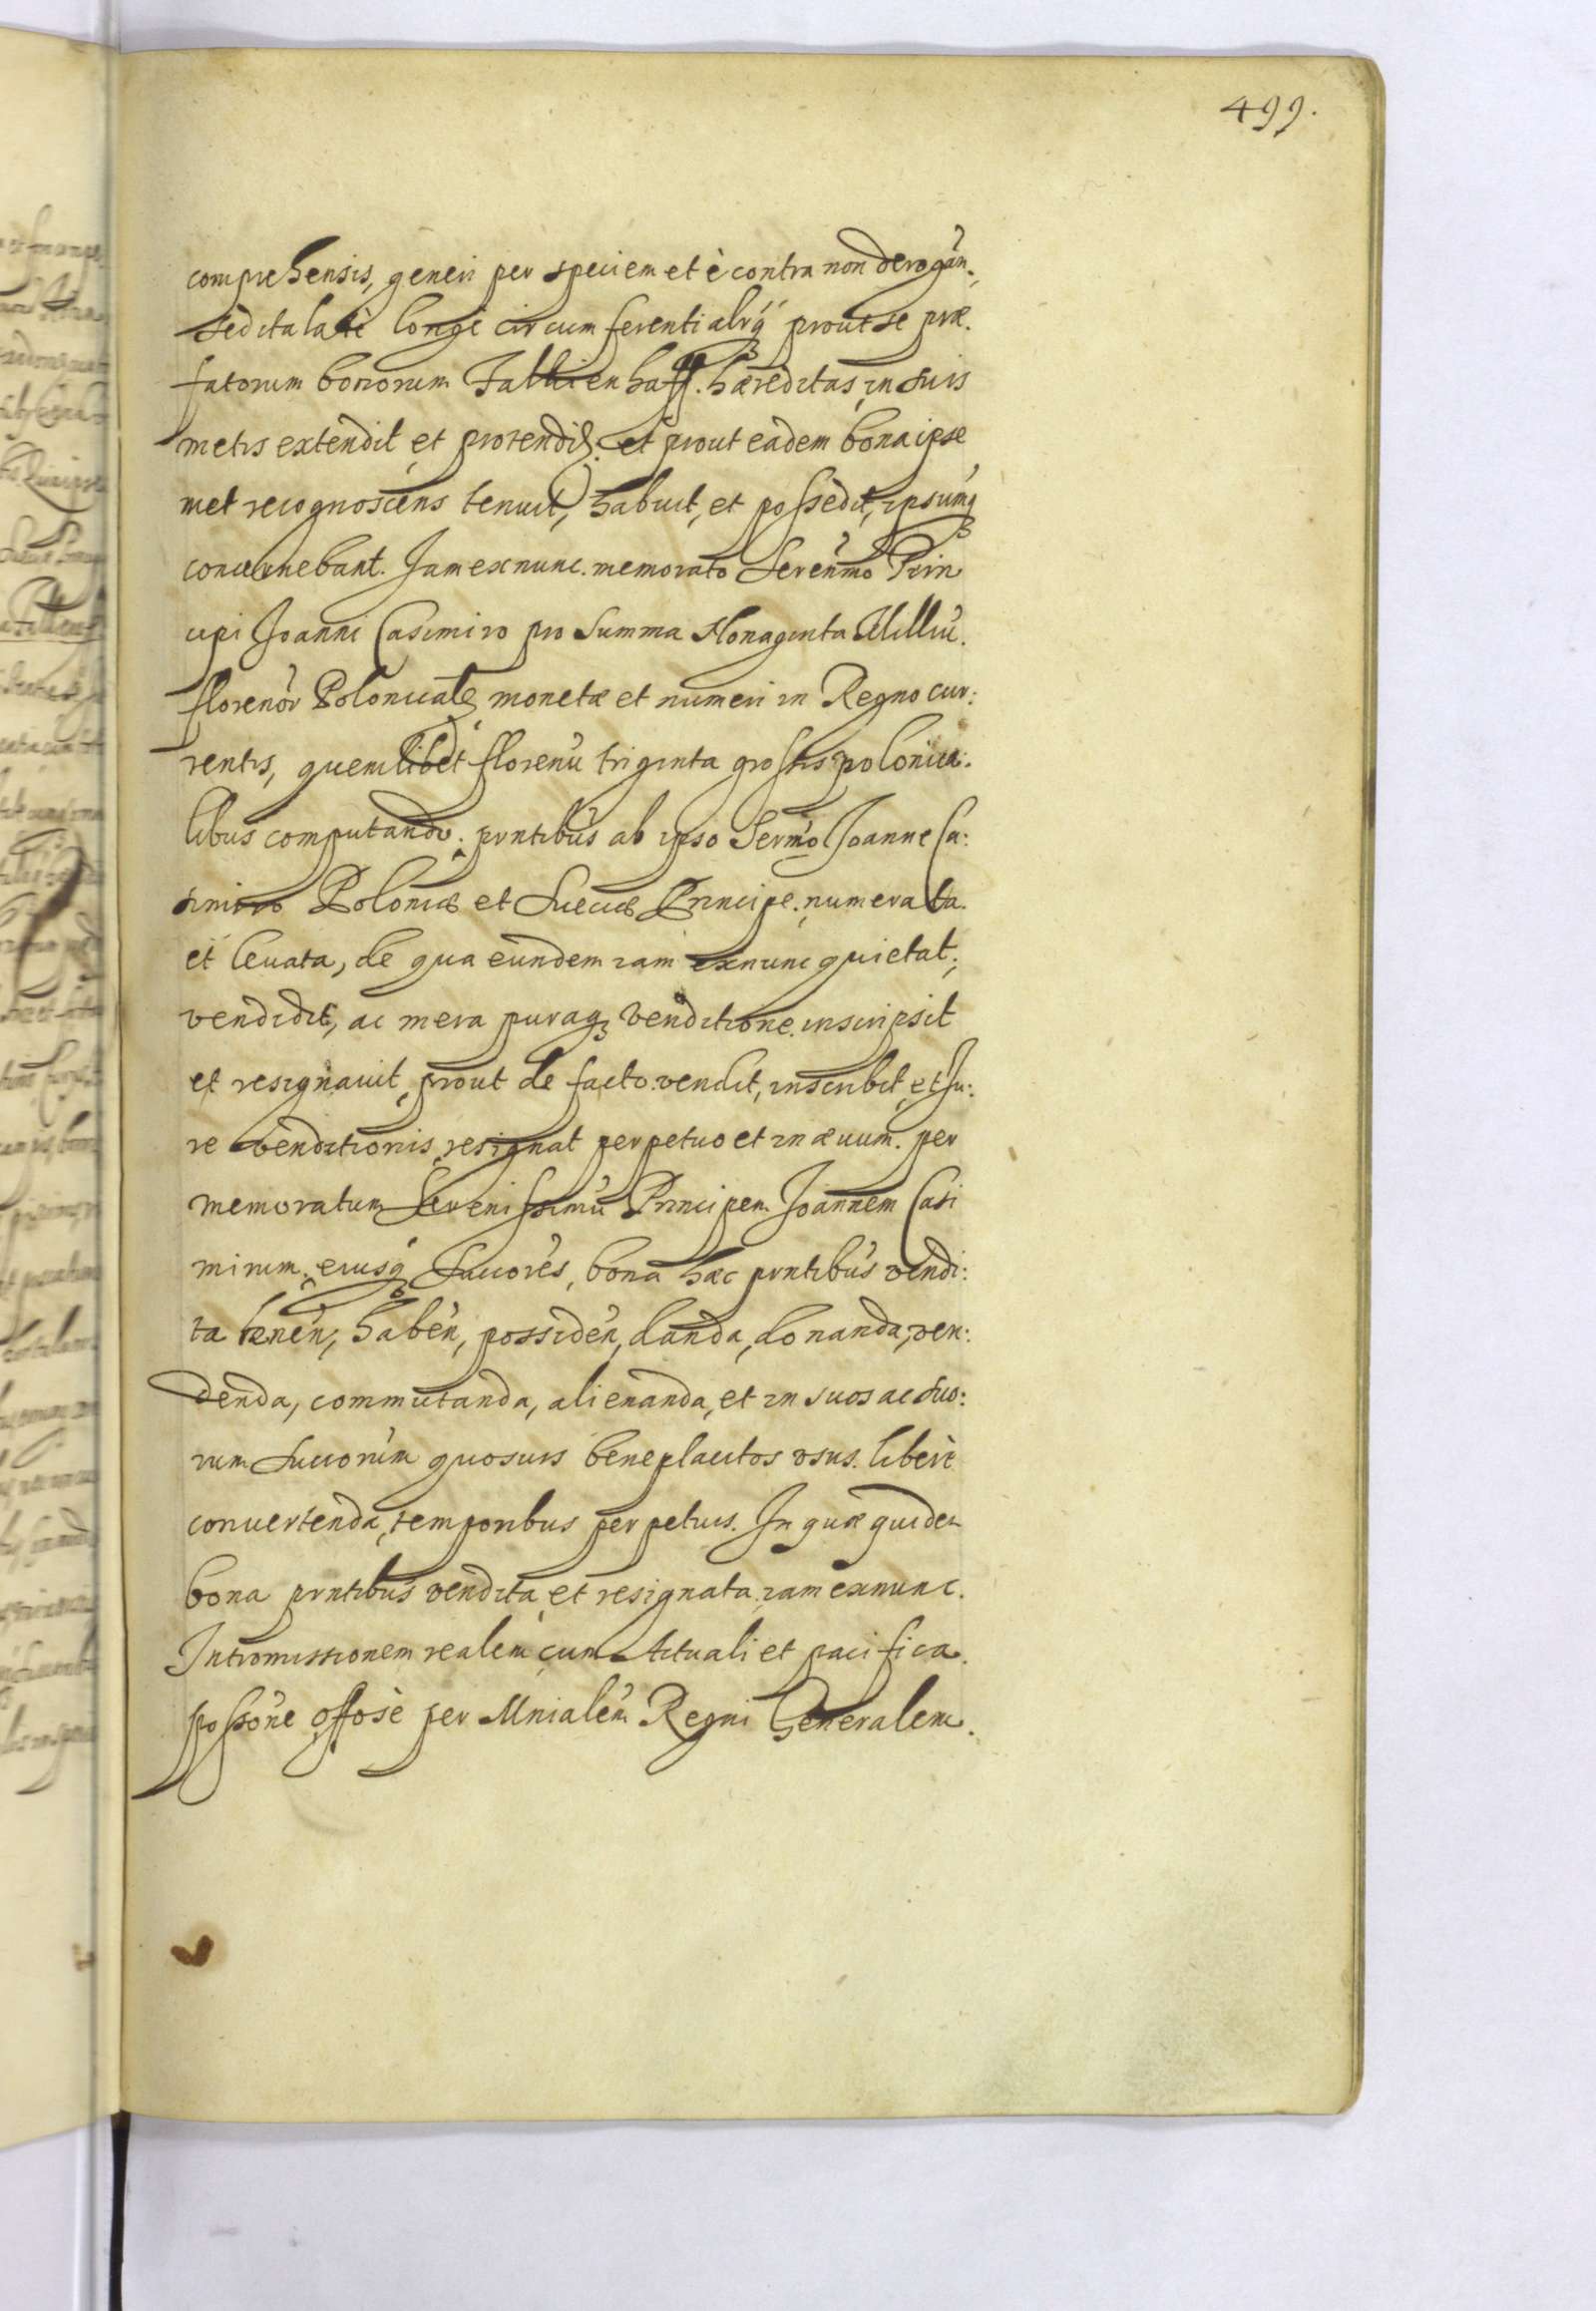 499.
comprehensis, generi per speciem et è contra non derogañ.
sed ita latè longè circumferentialr̃q́ prout se præ.
fatorum bonorum haff. hæreditas, in suis
metis extendit et protendit. et prout eadem bona ipse
met recognoscens tenuit, habuit, et possedit, ipsumq́
concernebant. Jam ex nunc. memorato Sereñmo Prin
cipi Joanni Casimiro pro Summa Nonaginta Milliũ.
florenor̃ Polonicaleˢ monetæ et numeri in Regno cur:
rentis, quemlibet florenũ triginta grossis polonica:
libus computando. pnntibus ab ipso Sermo Joanne Ca:
simiro Poloniæ et Sueciæ Principe. numerata.
et leuata, de qua eundem iam exnunc quietat;
vendidit, ac mera puraq3 venditione. inscripsit
et resignauit, prout de facto. vendit, inscribit, et Ju:
re venditionis resignat perpetuo et in æuum. per
memoratum Serenissimũ Principem Joannem Casi
mirum. eiusq́ Succores, bona hæc pnntibus vendi:
ta teneñ, habeñ, possideñ, danda, donanda, ven:
denda, commutanda, alienanda, et in suos ac suo:
rum Succorum quosuis beneplacitos vsus. liberè
conuertenda, temporibus perpetuis. In quæ quidem
bona pnntibus vendita et resignata iam exnunc.
Intromissionem realem cum Actuali et pacifica.
possõne offosè per Mnialem Regni Generalem.